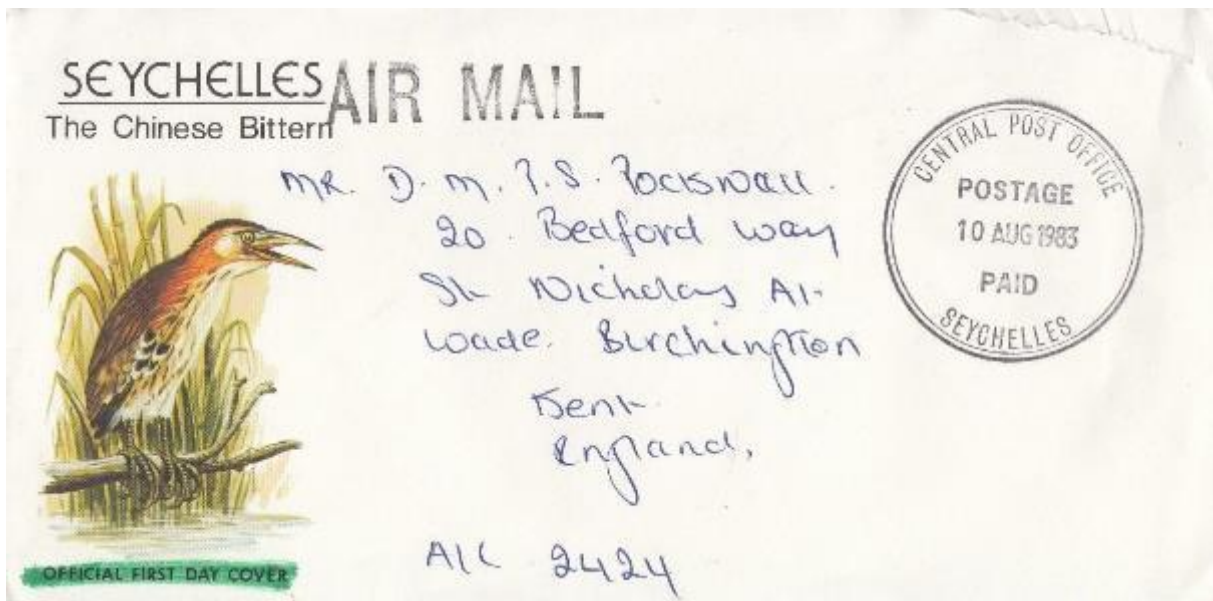 SEYCHELLES
AIR MAIL
The Chinese Bittern
MR. D. M. P. S.
20. Bedford Way
St Nicholas At
Wade. Birchington
Kent
England,
A/C 2424
CENTRAL POST OFFICE
POSTAGE
10 AUG 1983
PAID
SEYCHELLES
OFFICIAL FIRST DAY COVER